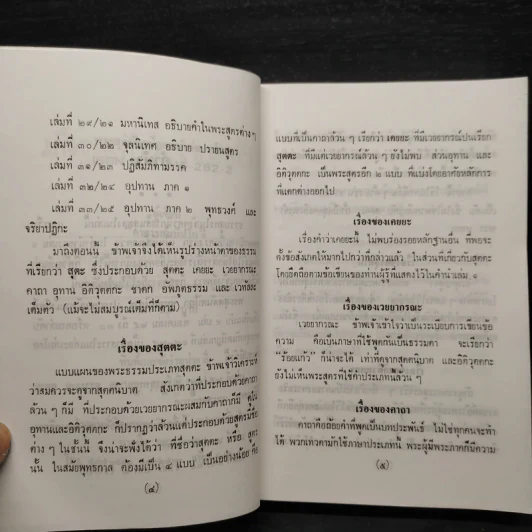 เล่มที่ ๒๙/๒๑ มหานิเทส อธิบายคำในพระสูตรต่างๆ
เล่มที่ ๓๐/๒๒ จุลนิเทศ อธิบาย ปรายนสูตร
เล่มที่ ๓๑/๒๓ ปฏิสัมภิทามรรค
เล่มที่ ๓๒/๒๔ อุปทาน ภาค ๑
เล่มที่ ๓๓/๒๕ อุปทาน ภาค ๒ พุทธวงค์ และ
จริยาปฏิกะ
มาถึงตอนนี้ ข้าพเจ้าจึงได้เห็นรูปร่างหน้าตาของธรรม
ที่เรียกว่า สุตะ ซึ่งประกอบด้วย สุตตะ เคยยะ เวยยากรณะ
คาถา อุทาน อิติวุตตกะ ชาดก อัพภูตธรรม และ เวทัลละ
เต็มตัว (แม้จะไม่สมบูรณ์เต็มที่ก็ตาม)
เรื่องของสุตตะ
แบบแผนของพระธรรมประเภทสุตตะ ข้าพเจ้าวิเคราะห์
ว่าสมควรจะดูจากสุตตนิบาต สังเกตว่าที่ประกอบด้วยคาถา
ล้วน ๆ ก็มี ที่ประกอบด้วยเวยยากรณะผสมกับคาถาก็มี
อุทานและอิติวุตตกะ ก็ปรากฏว่าล้วนแต่ประกอบด้วยสูตร
ต่าง ๆ ในชั้นนี้ จึงน่าจะฟังได้ว่า ที่ชื่อว่าสุตตะ หรือ สูตร
นั้น ในสมัยพุทธกาล ต้องมีเป็น ๔ แบบ เป็นอย่างน้อย คือ
(๔)
แบบที่เป็นคาถาล้วน ๆ เรียกว่า เคยยะ ที่มีเวยยากรณ์ปนเรียก
สุตตะ ที่มีแต่เวยยากรณ์ล้วน ๆ ยังไม่พบ ส่วนอุทาน และ
อิติวุตตกะ เป็นพระสูตรอีก ๒ แบบ ที่แบ่งโดยอาศัยหลักการ
ที่แตกต่างออกไป
เรื่องของเคยยะ
เรื่องคำว่าเคยยะนี้ ไม่พบร่องรอยหลักฐานอื่น ที่พอจะ
ตั้งข้อสังเกตให้มากไปกว่าที่กล่าวแล้ว ในส่วนที่เกี่ยวกับสุตตะ
โดยยึดถือตามข้อเขียนของท่านผู้รู้ที่แสดงไว้ในคำนำเล่ม ๑
เรื่องของเวยยากรณะ
เวยยากรณะ ข้าพเจ้าเข้าใจว่าเป็นระเบียบการเขียนข้อ
ความ คือเป็นภาษาที่ใช้พูดกันเป็นธรรมดา จะเรียกว่า
"ร้อยแก้ว" ก็น่าจะได้ เท่าที่ดูจากสุตตนิบาต และอิติวุตตกะ
ยังไม่เห็นพระสูตรที่ใช้คำประเภทนี้ล้วน ๆ
เรื่องของคาถา
คาถาคือถ้อยคำที่พูดเป็นบทประพันธ์ ไม่ใช่ทุกคนจะทำ
ได้ พวกเทวดามักใช้ภาษาประเภทนี้ พระผู้มีพระภาคก็มีความ
(๕)